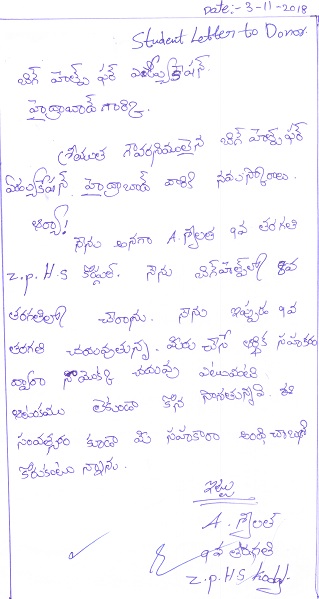 Date:- 3-11-2018
Student Letter to Donor.
బిగ్ హెల్ప్ ఫర్ ఎడ్యుకేషన్
హైద్రాబాద్ గారికి.
శ్రీయుత గౌరవనీయులైన బిగ్ హెల్ప్ ఫర్
ఎడ్యుకేషన్ హైద్రాబాద్ వారికి నమస్కారాలు.
ఆర్యా!
నేను అనగా A. శ్రీలత 9వ తరగతి
Z.P.H.S నేను బిగ్ హెల్ప్ లో 8వ
తరగతిలో చేరాను. నేను ఇప్పుడు 9వ
తరగతి చదువుతున్న. మీరు చేసే ఆర్థిక సహకారం
ద్వారా నా యొక్క చదువు ఎటువంటి
ఆటంకము లేకుండా కొన సాగుతున్నది. ఈ
సంవత్సరం కూడా మీ సహకారా అందించాలని
కోరుకుంటు న్నాను.
ఇట్లు
A. శ్రీలత
9వ తరగతి
Z.P.H.S